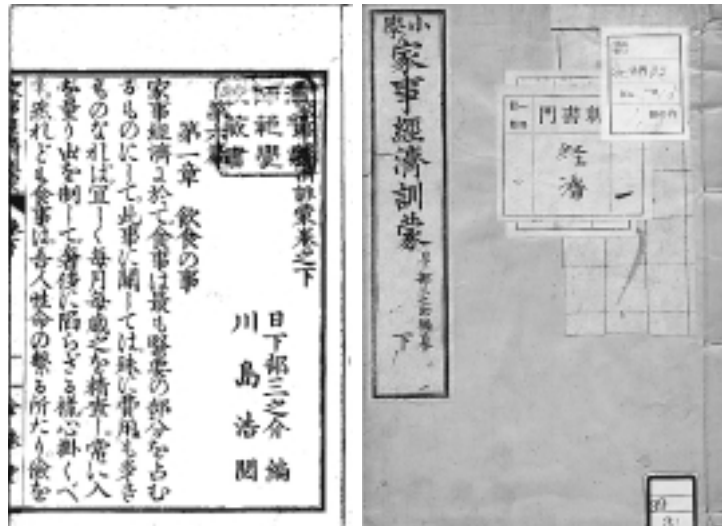 小學
家事經濟訓蒙
下
朝書門
経濟
一
濟訓蒙巻之下
日下部三之介 編
川島浩 閲
第一章 飲食の事
家事經濟に於て食事は最も緊要の部分を占む
るものにして此事に關しては殊に費用も多き
ものなれば宜しく毎月毎歳之を精査し常に入
を量り出を制して奢侈に陷らざる樣心掛くべ
し然れども食事は吾人性命の繫る所たり儉を